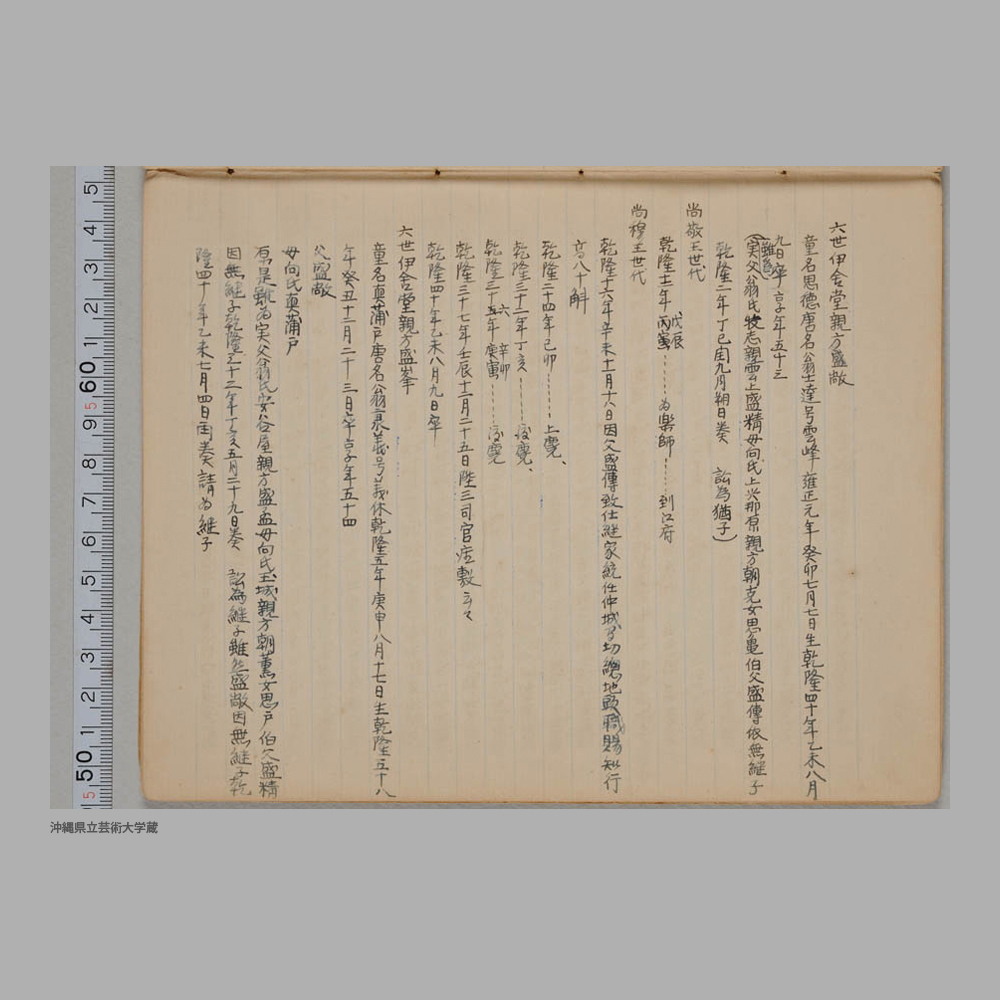 六世伊舎堂親方盛敞
童名思徳唐名翁士達号雲峰雍正元年癸卯七月七日生乾隆四十年乙未八月
九日卒享年五十三
(雖為実父翁氏牧志親雲上盛精母向氏上与那原親方朝克女思亀伯父盛傳依無継子
乾隆二年丁巳閏九月朔日奏 訟為猶子)
尚敬王世代
乾隆十一年丙寅 戊辰……為楽師……到江府
尚穆王世代
乾隆十六年辛未十二月十六日因父盛傳致仕継家統任仲城間切總地頭職賜知行
高八十斛
乾隆二十四年己卯……上覧、
乾隆三十二年丁亥……度覧、
乾隆三十五年庚寅 六 辛卯……度覧
乾隆三十七年壬辰十二月二十五日陞三司官座敷云々
乾隆四十年乙未八月九日卒
六世伊舎堂親方盛峯
童名真蒲戸唐名翁宣義号義休乾隆五年庚申八月十七日生乾隆五十八
年癸丑十二月二十三日卒享年五十四
父盛敞
母向氏真蒲戸
原是雖為実父翁氏安谷屋親方盛孟母向氏玉城親方朝薫女思戸伯父盛精
因無継子乾隆三十二年丁亥五月二十九日奏 訟為継子雖然盛敞因無継子乾
隆四十年乙未七月四日再奏請為継子
沖縄県立芸術大学蔵
5 4 3 2 1 60 5 9 8 7 6 5 4 3 2 1 50 5